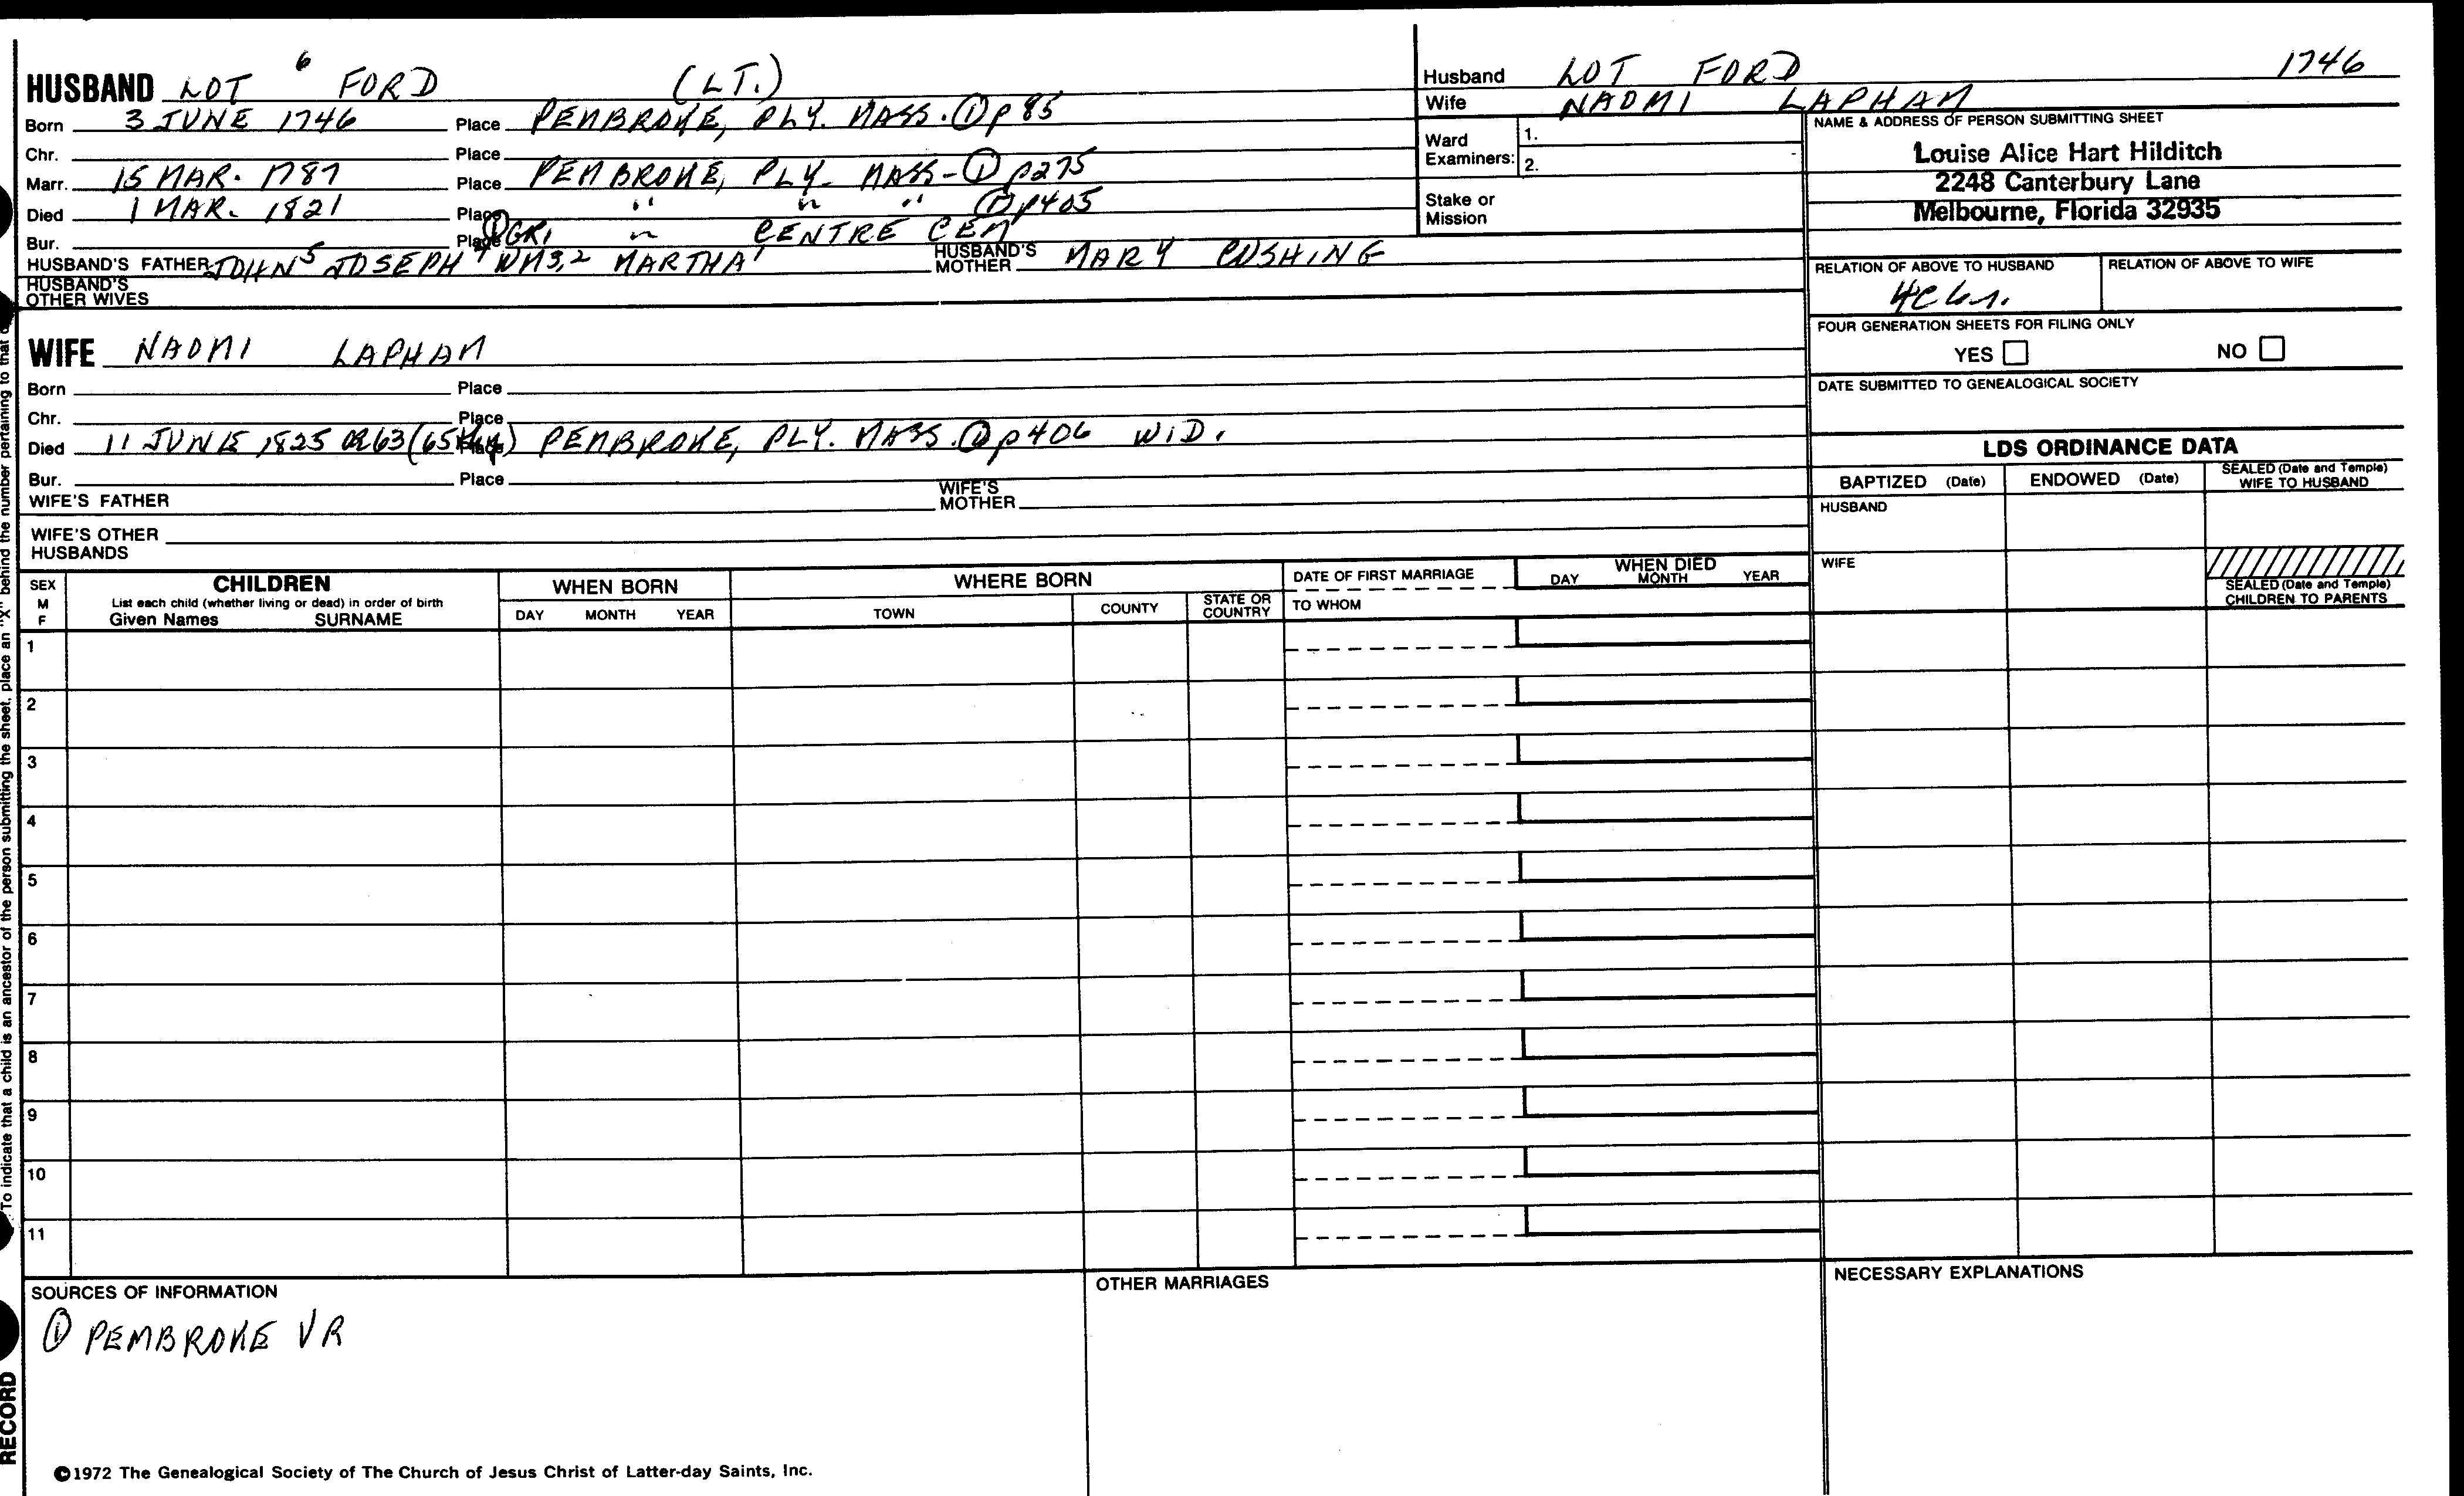 HUSBAND LOT 6 FORD (LT.)
Born 3 JUNE 1746 Place PEMBROKE, PLY. MASS. ① p 85
Chr. Place
Marr. 15 MAR. 1787 Place PEMBROKE, PLY. MASS- ① p275
Died 1 MAR. 1821 Place " " " ① p405
Bur. Place ① GR1 " CENTRE CEM
HUSBAND'S FATHER JOHN 5 JOSEPH 4 WM 3,2 MARTHA 1 HUSBAND'S MOTHER MARY CUSHING
HUSBAND'S OTHER WIVES
WIFE NAOMI LAPHAM
Born Place
Chr. Place
Died 11 JUNE 1825 Place PEMBROKE, PLY. MASS. ① p406 WID.
Bur. Place
WIFE'S FATHER WIFE'S MOTHER
WIFE'S OTHER HUSBANDS
Husband LOT FORD 1746
Wife NAOMI LAPHAM
Ward Examiners: 1.
2.
Stake or Mission
NAME & ADDRESS OF PERSON SUBMITTING SHEET
Louise Alice Hart Hilditch
2248 Canterbury Lane
Melbourne, Florida 32935
RELATION OF ABOVE TO HUSBAND RELATION OF ABOVE TO WIFE
FOUR GENERATION SHEETS FOR FILING ONLY
YES NO
DATE SUBMITTED TO GENEALOGICAL SOCIETY
LDS ORDINANCE DATA
BAPTIZED (Date) ENDOWED (Date) SEALED (Date and Temple) WIFE TO HUSBAND
HUSBAND
WIFE
SEALED (Date and Temple) CHILDREN TO PARENTS
SEX M F
CHILDREN
List each child (whether living or dead) in order of birth
Given Names SURNAME
WHEN BORN
DAY MONTH YEAR
WHERE BORN
TOWN COUNTY STATE OR COUNTRY
DATE OF FIRST MARRIAGE
TO WHOM
WHEN DIED
DAY MONTH YEAR
1
2
3
4
5
6
7
8
9
10
11
SOURCES OF INFORMATION
① PEMBROKE VR
OTHER MARRIAGES
NECESSARY EXPLANATIONS
©1972 The Genealogical Society of The Church of Jesus Christ of Latter-day Saints, Inc.
To indicate that a child is an ancestor of the person submitting the sheet, place an "X" behind the number pertaining to that
RECORD